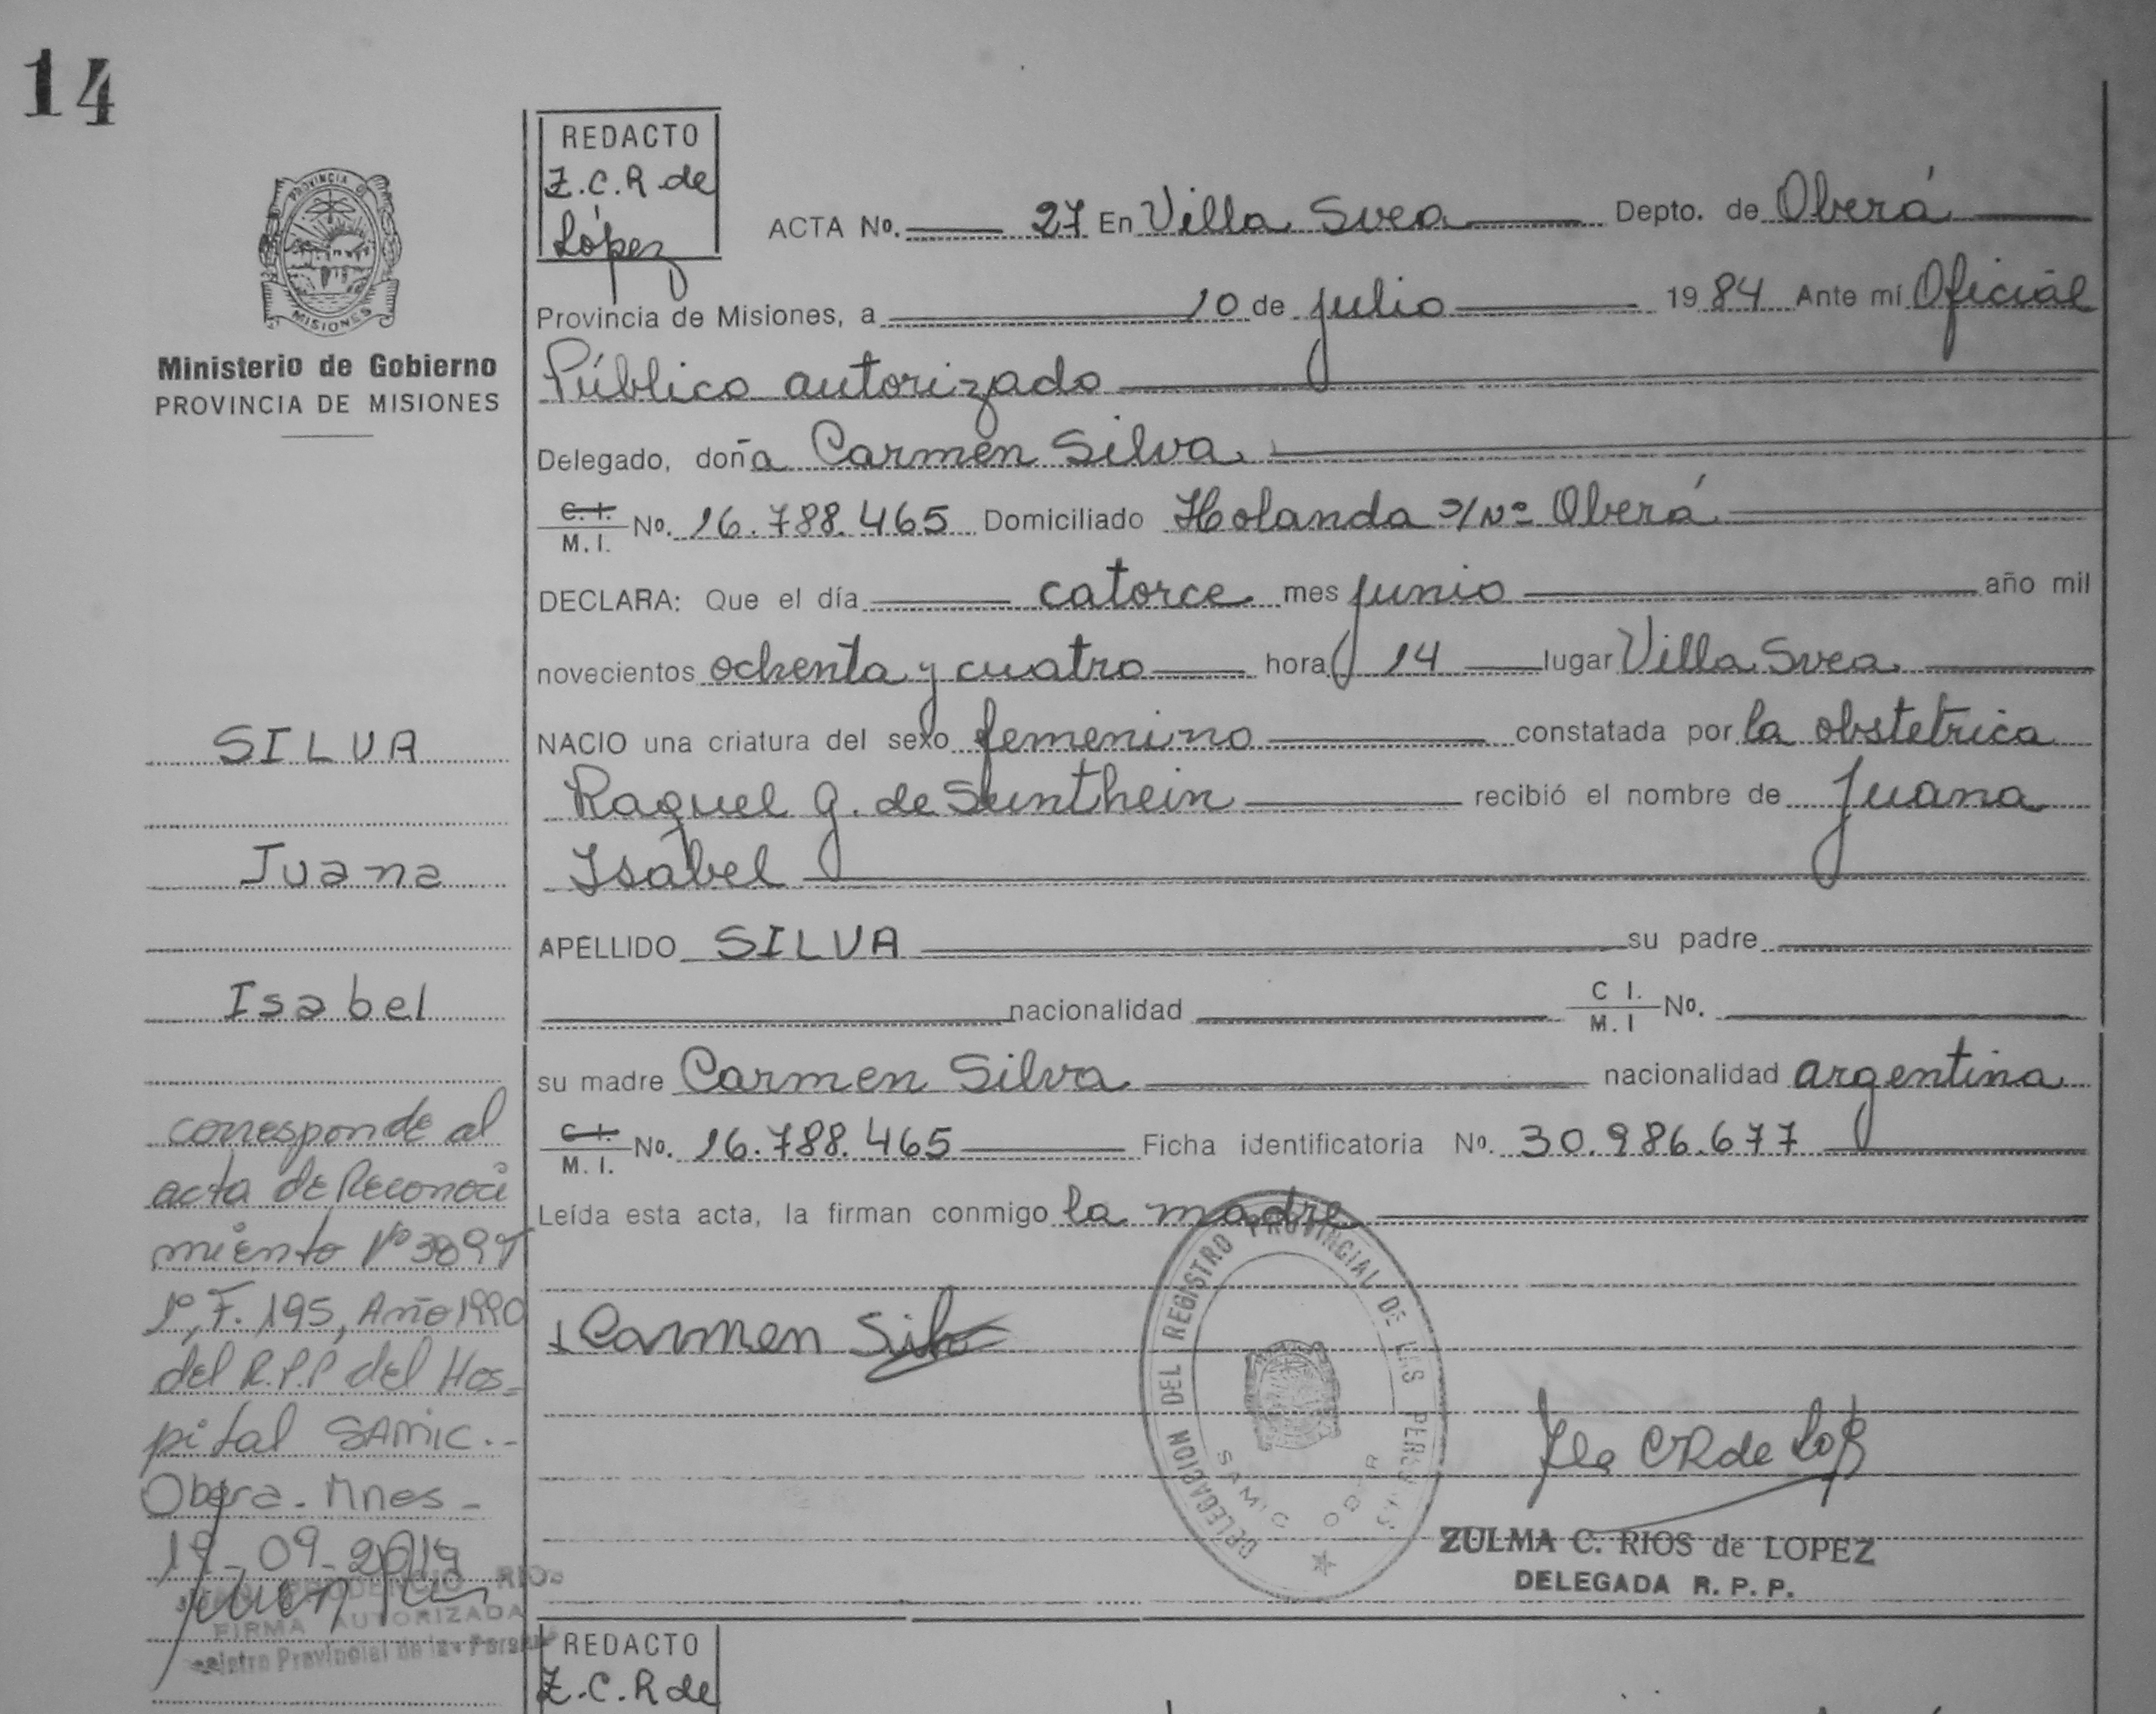 14
PROVINCIA DE
MISIONES
Ministerio de Gobierno
PROVINCIA DE MISIONES
SILVA
Juana
Isabel
corresponde al
acta de Reconoci
miento Nº
F. 195, Año 1990
del R.P.P del Hos-
pital SAMIC.-
Oberá. Mnes-
-09-
PRUDENCIO RIOS
FIRMA AUTORIZADA
Provincial de las
REDACTO
Z.C.R de
López
ACTA No. 27 En Villa Svea Depto. de Oberá
Provincia de Misiones, a 10 de julio 1984 Ante mí Oficial
Público autorizado
Delegado, doña Carmen Silva
C.I. / M.I. No. 16.788.465 Domiciliado Holanda s/Nº Oberá
DECLARA: Que el día catorce mes junio año mil
novecientos ochenta y cuatro hora 14 lugar Villa Svea
NACIO una criatura del sexo femenino constatada por la obstetrica
Raquel G. de Sunthein recibió el nombre de Juana
Isabel
APELLIDO SILVA su padre
nacionalidad C I. / M. I No.
su madre Carmen Silva nacionalidad argentina
C.I. / M.I. No. 16.788.465 Ficha identificatoria No. 30.986.677
Leída esta acta, la firman conmigo la madre
Carmen Silva
DELEGACION DEL REGISTRO PROVINCIAL DE LAS PERSONAS
SAMIC
ZULMA C. RIOS de LOPEZ
DELEGADA R. P. P.
REDACTO
Z.C.R de